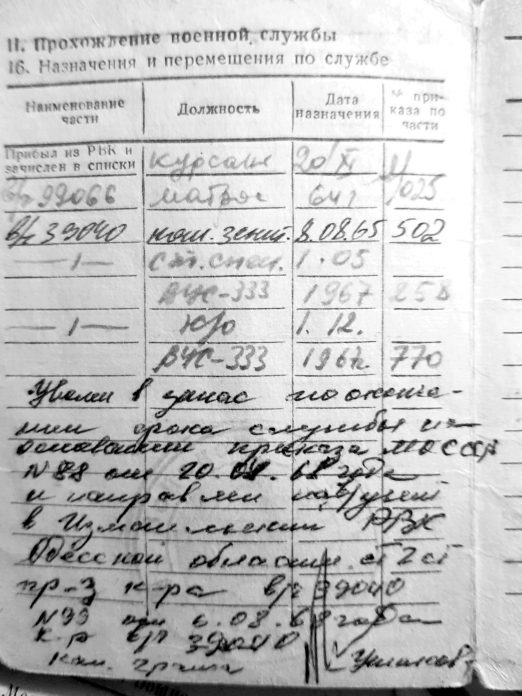 II. Прохождение военной службы
16. Назначения и перемещения по службе
Наименование части Должность Дата назначения № приказа по части
Прибыл из РВК и зачислен в списки курсант 20/XI
в/ч 99066 матрос 64 г /025
в/ч 39040 ком. зенит. 8.08.65 502
— 1 — ст. спец. 1.05
ВУС-333 1967 258
— 1 — к/о 1.12.
ВУС-333 1967г. 770
Уволен в запас по оконча-
нии срока службы на
основании приказа МО СССР
N 88 от 20.04.68 года
и направлен
в Измаильский РВК
Одесской области.
пр-з к-ра в/ч 39040
N 99 от 6.08.68 года
К-р в/ч 39040